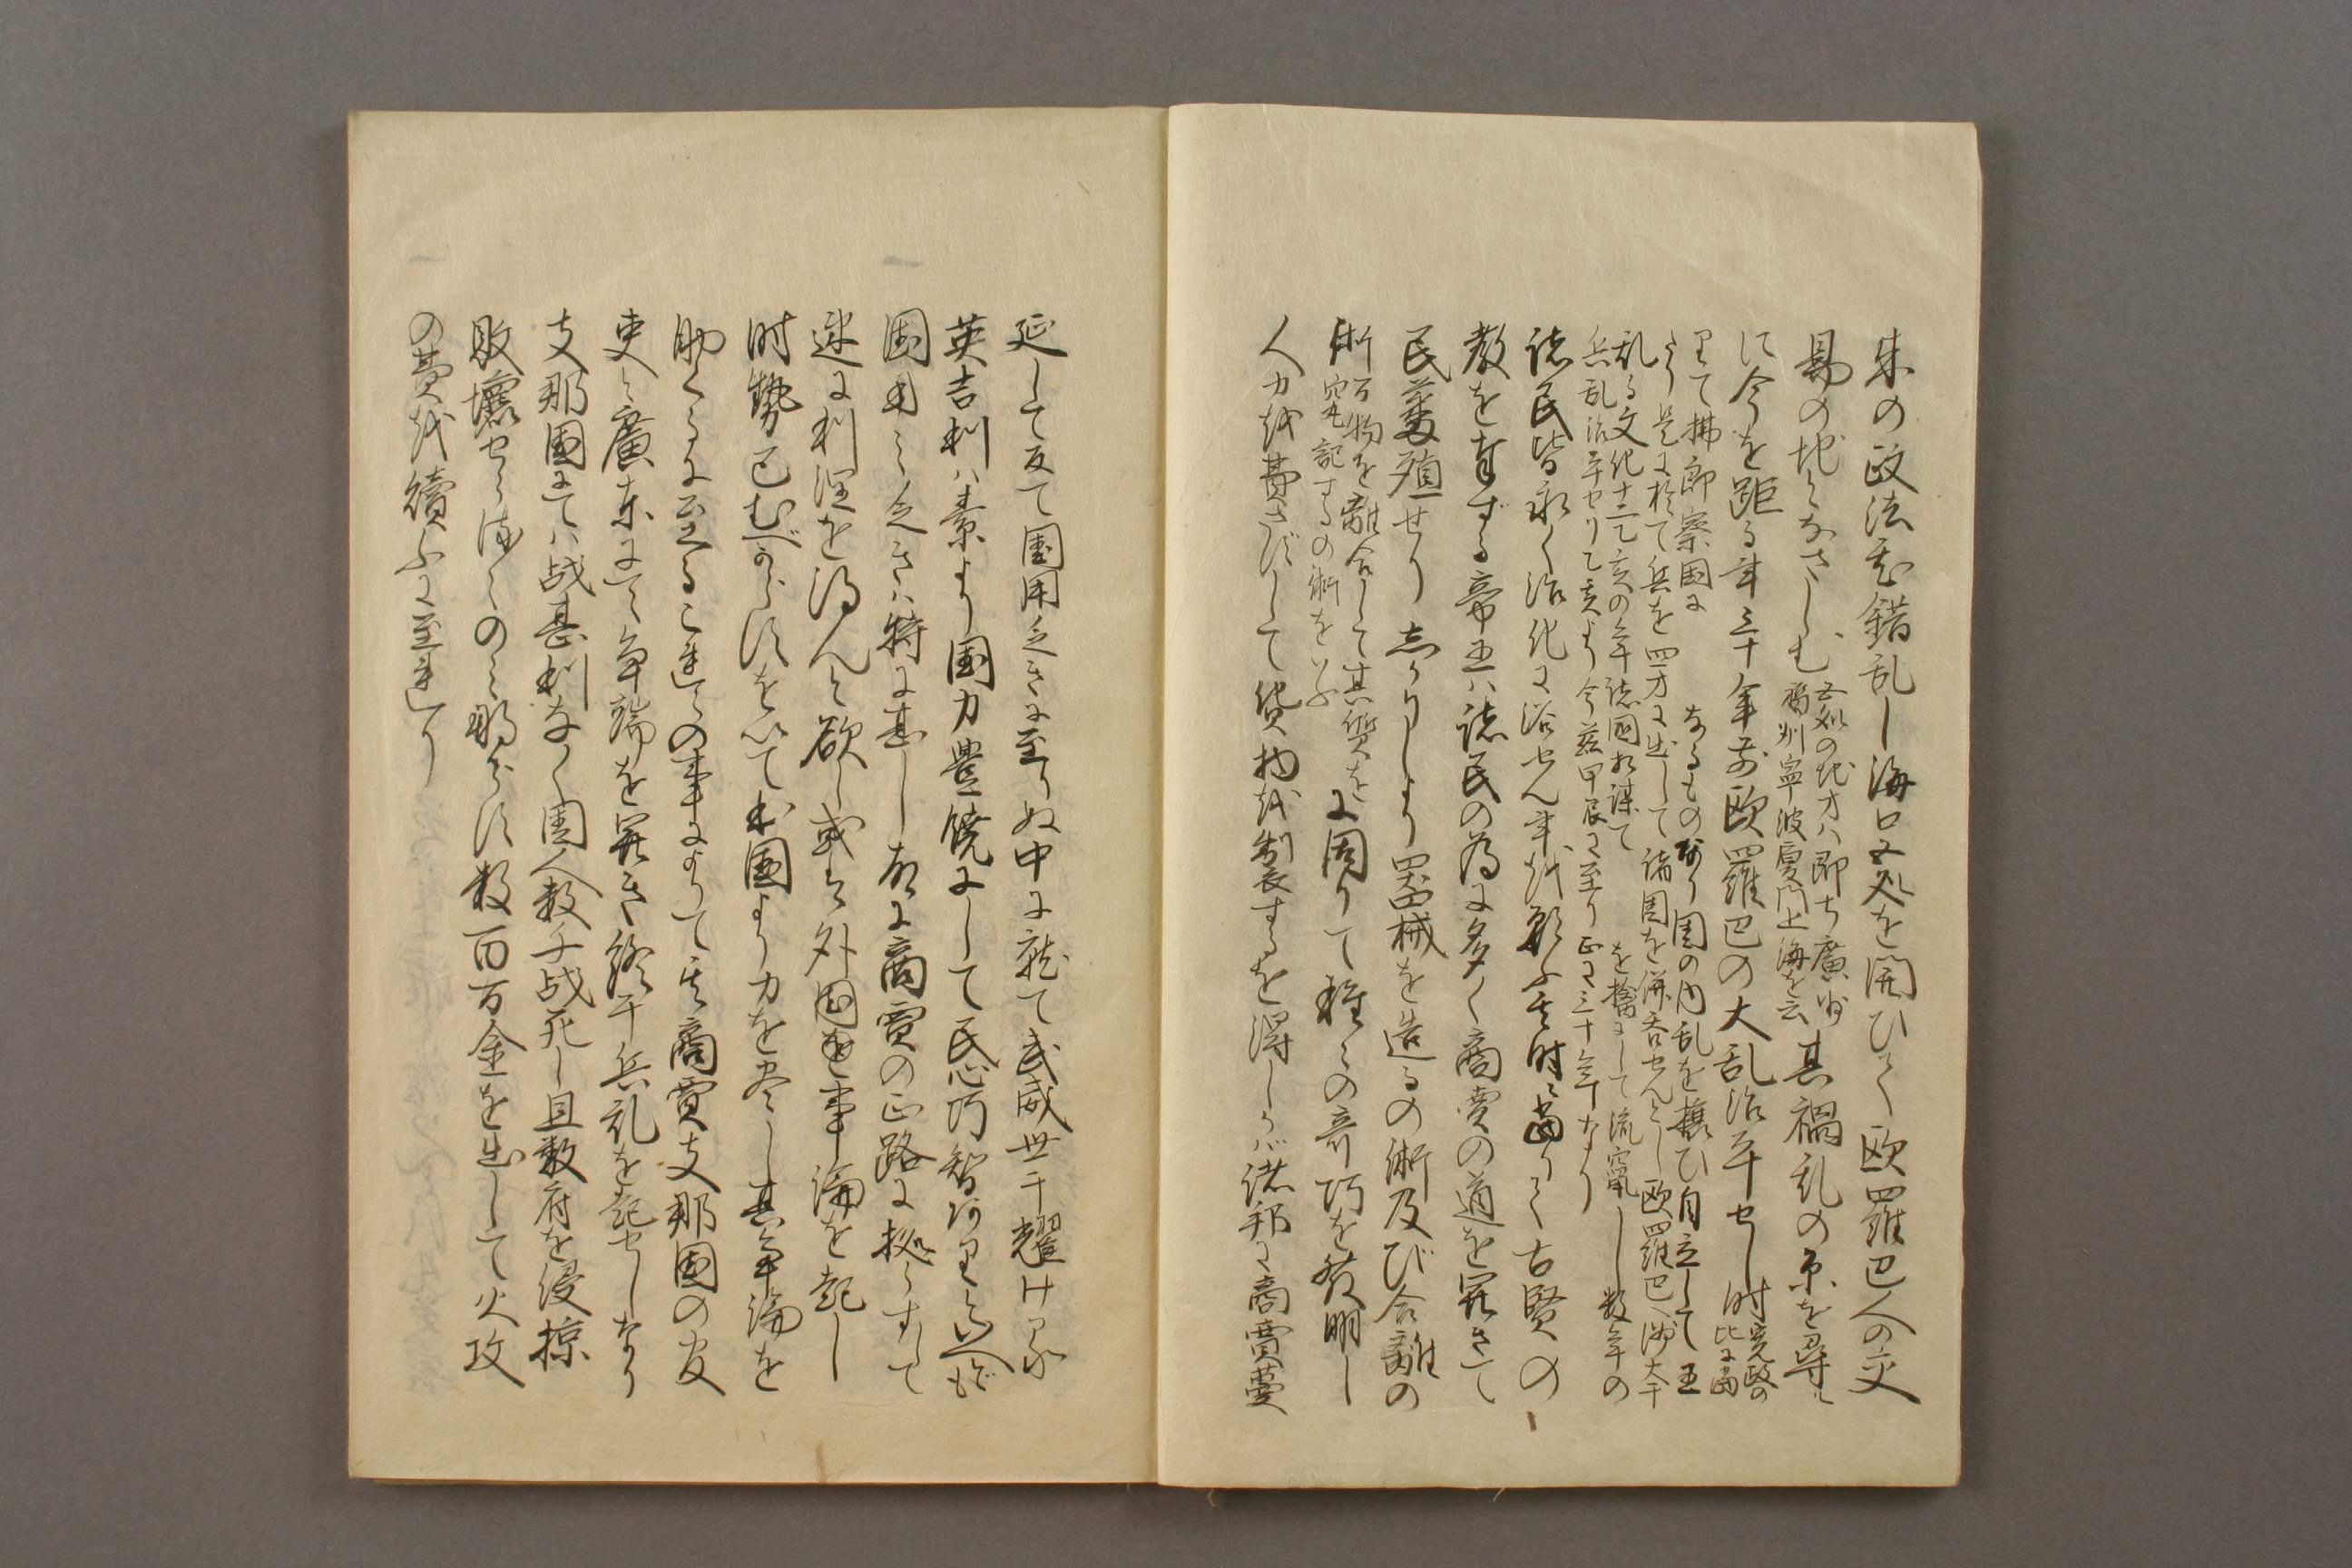 来の政法を錯乱し海口五処を開ひて欧羅巴人の交
易の地となさしむ
五処の地方ハ即ち廣州
福州寧波厦門上海を云
其禍乱の原を尋ル
に今を距る事三十年前欧羅巴の大乱治平せし時
寛政の
比に当
りて拂郎察国に
なるものあり国の内乱を攘ひ自立して王
たり是に於て兵を四方に出して諸国を併呑せんとし欧羅巴洲大干
乱る文化十二乙亥の年諸国相謀て
を擒にして流竄し数年の
兵乱治平セリ乙亥より今茲甲辰に至り正に三十年なり
諸民皆永く治化に浴せん事を願ふ其時に当りて古賢の
教を奉ずる帝王ハ諸民の為に多く商賣の道を開きて
民蕃殖せりしかりしより器械を造るの術及び合離の
術
万物を離合して其質を
究丸記するの術をいふ
に因りて種々の奇巧を発明し
人力を費さずして貨物を制表するを得しかバ諸邦に商賣蔓
延して反て国用乏きに至りぬ中に就て武威世干耀ける
英吉利ハ素より国力豊饒にして民心巧智ありと雖も
国用之乏きハ特に甚し故に商賣の正路に拠らすして
速に利潤を得んと欲し或は外国と争論を起し
時勢已むべからすを以て本国より力を尽し其争論を
助くるに至るこれらの事によりて其商賣支那国の官
吏と廣東にて争端を開き終干兵乱を起せしなり
支那国にてハ战甚利なく国人数千战死し且数府を侵掠
敗壊せらるゝのみならす数百万金を出して火攻
の費を續ふに至れり